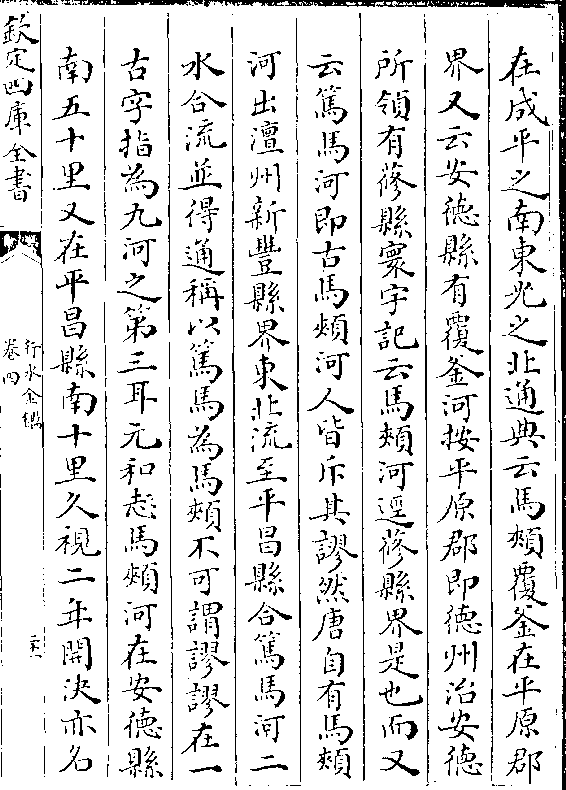 在成平之南東光之北通典云馬頰覆釜在平原郡
界又云安德縣有覆釜河按平原郡即德州治安德
所領有蓨縣寰宇記云馬頰河逕蓨縣界是也而又
云篤馬河即古馬頰河人皆斥其謬然唐自有馬頰
河出澶州新豐縣界東北流至平昌縣合篤馬河二
水合流並得通稱以篤馬為馬頰不可謂謬謬在一
古字指為九河之第三耳元和志馬頰河在安德縣
南五十里又在平昌縣南十里久視二年開決亦名
欽定四庫全書
行水金鑑
卷四